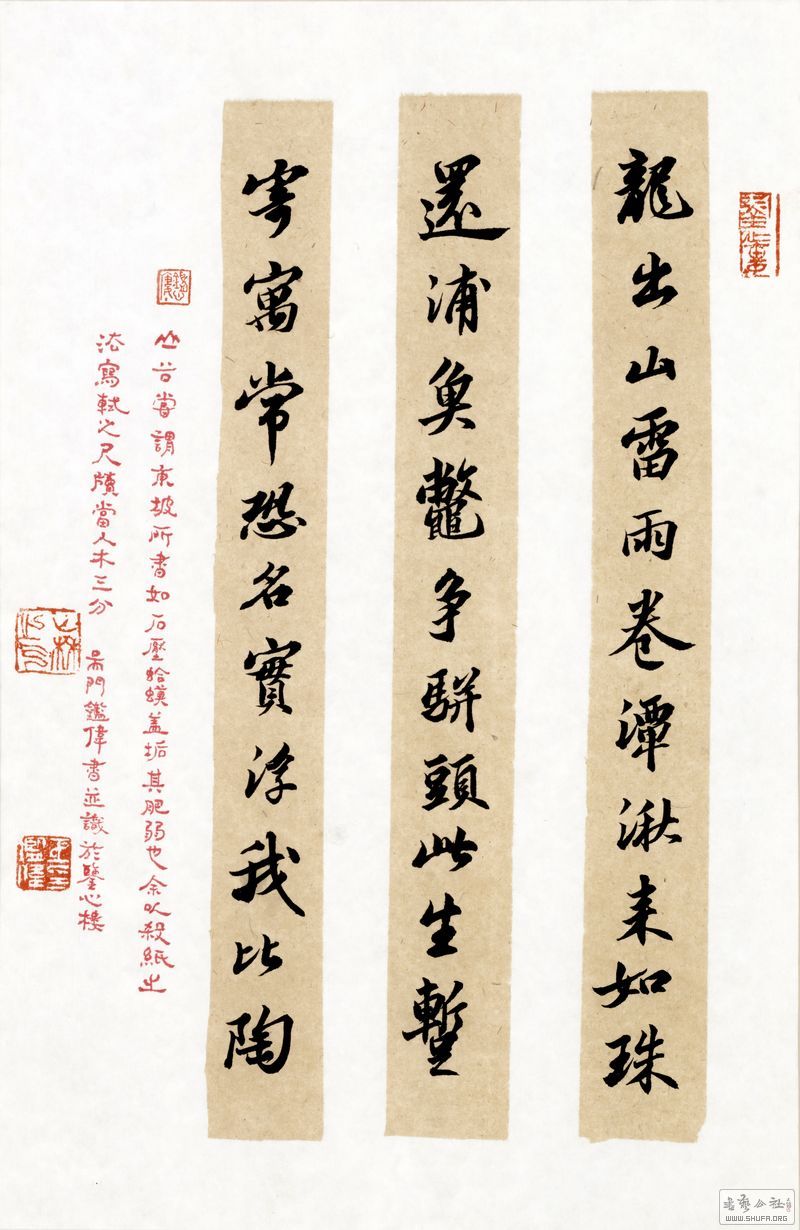 龍出山雷雨卷潭湫来如珠
還浦奐鼈争駢頭此生暫
寄寓常恐名實浮我比陶
山谷嘗謂東坡所書如石壓蛤蟆盖垢其肥弱也余以殺紙之
法寫軾之尺牘當入木三分　吴門鑑偉書並識於鑒心樓
WWW.SHUFA.ORG